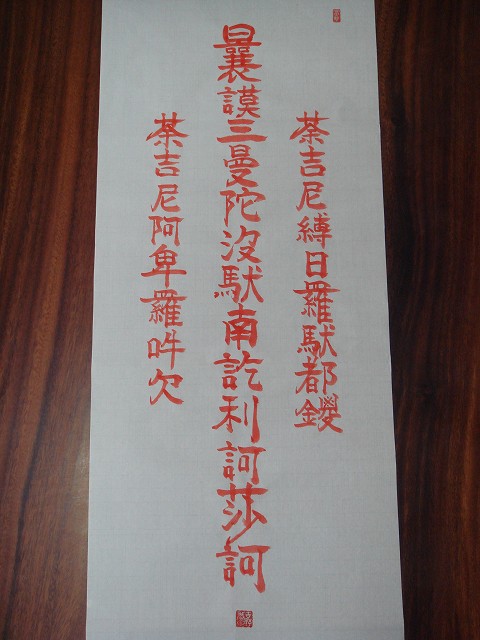 荼吉尼縛日羅馱都鑁
曩謨三曼陀沒馱南訖利訶莎訶
荼吉尼阿卑羅吽欠